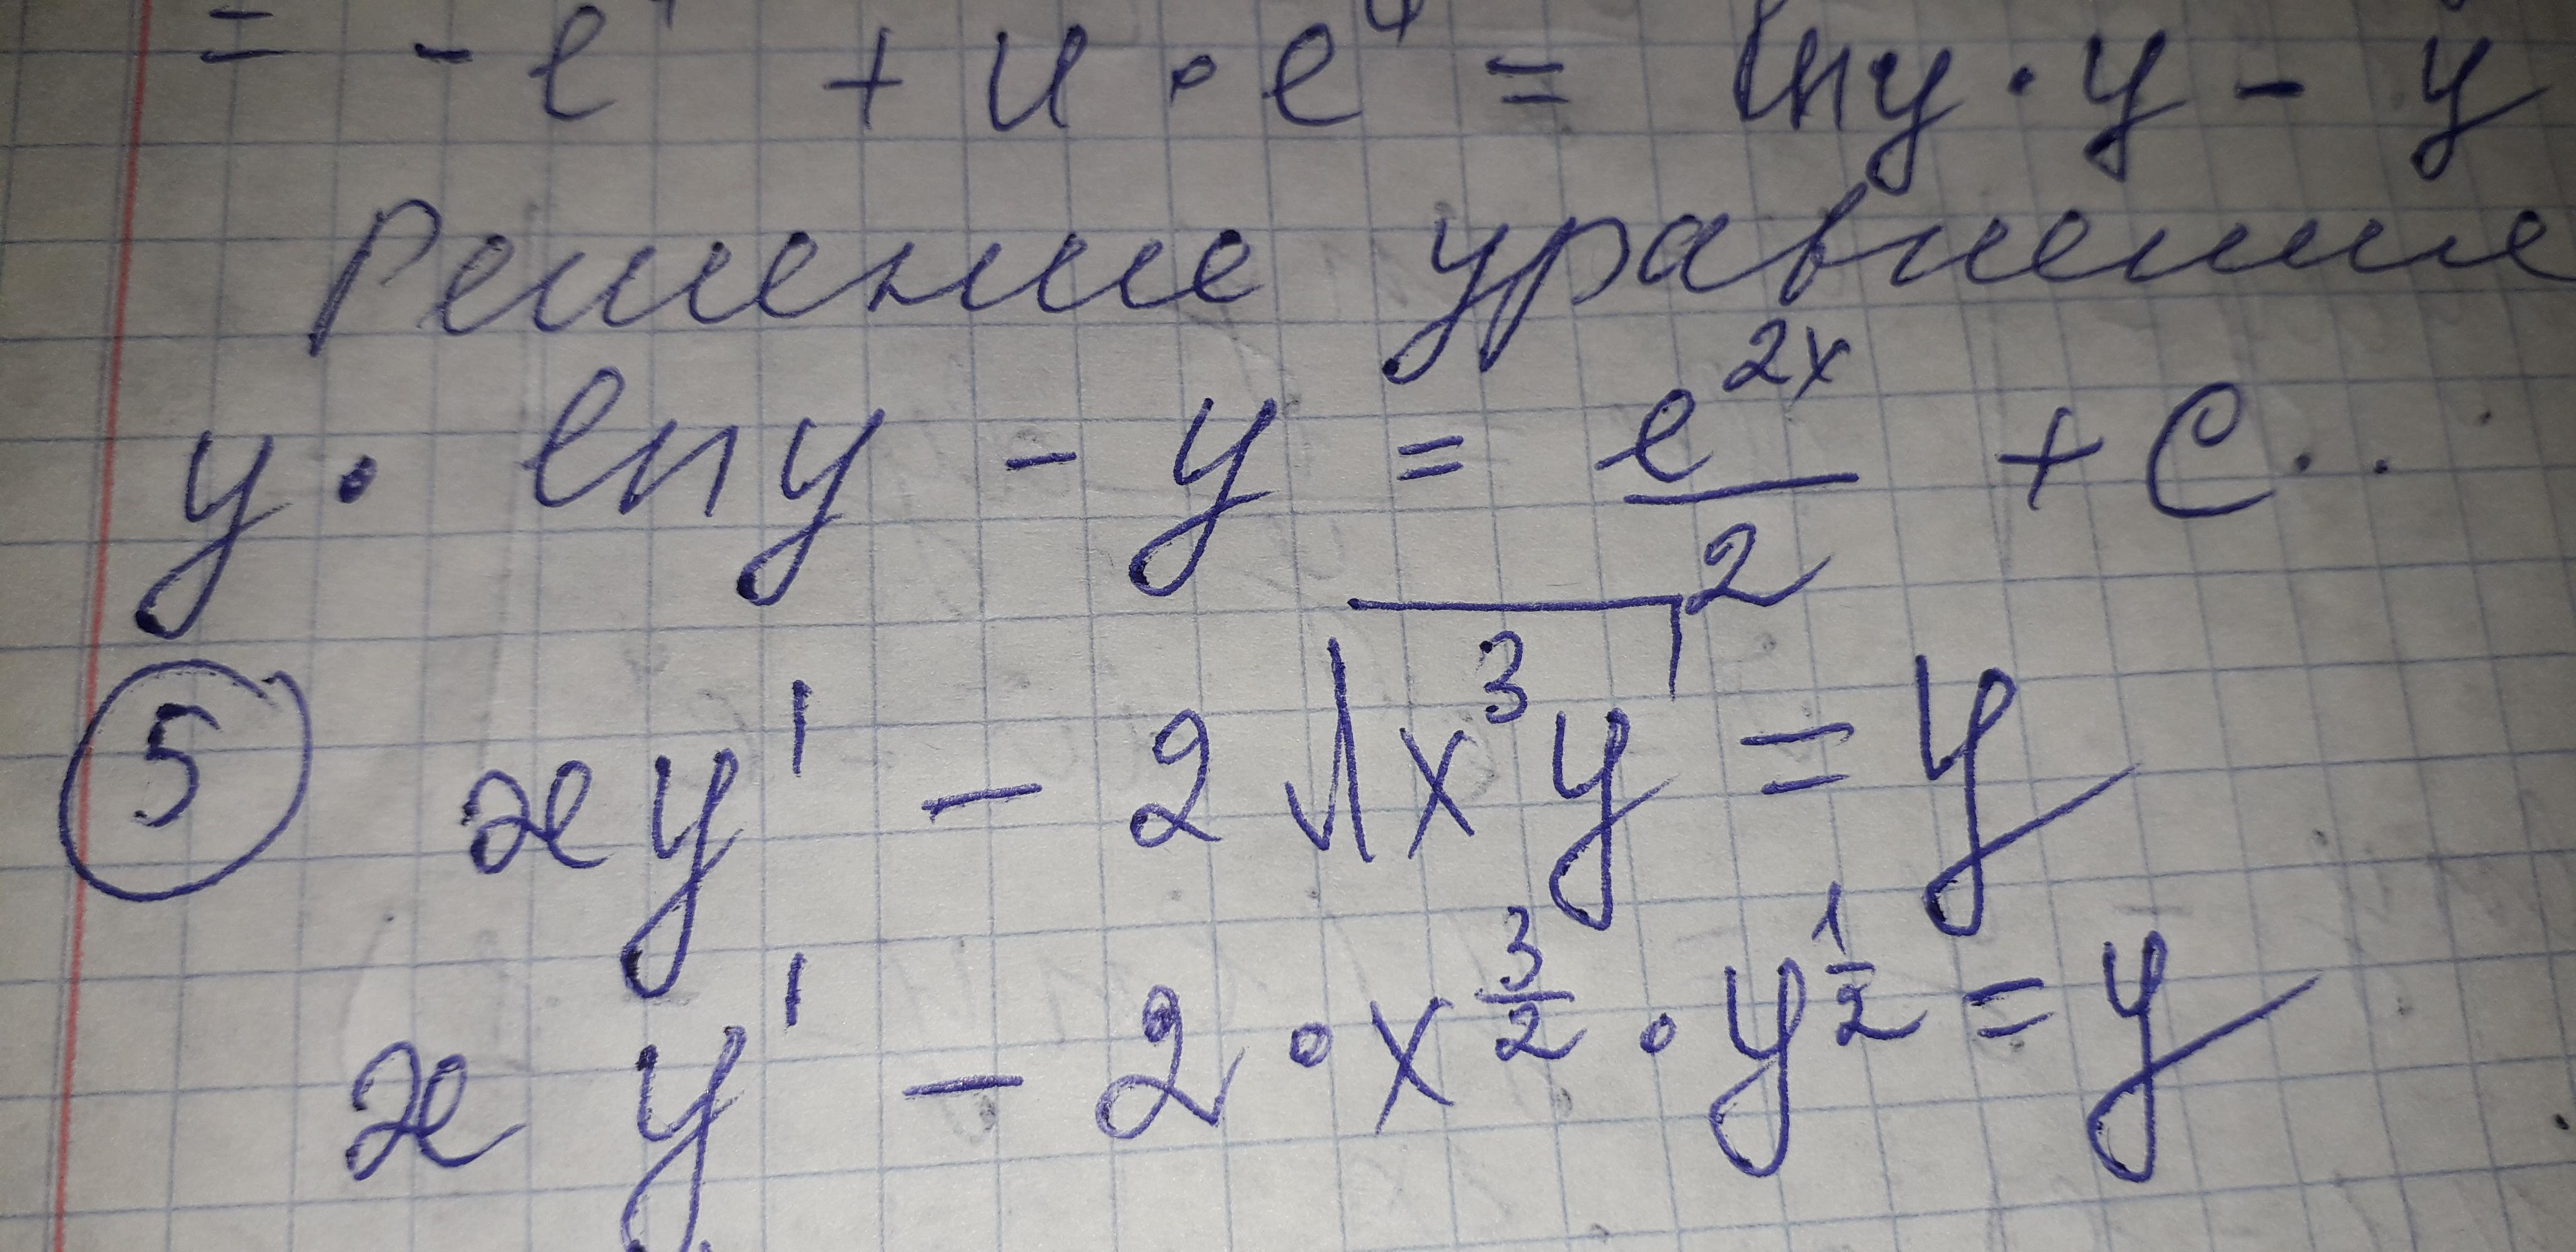 = - e + u · e^u = lny · y - y
Решение уравнение
y · lny - y = e^2x / 2 + C..
5 xy' - 2 √x^3y = y
x y' - 2 · x^3/2 · y^1/2 = y